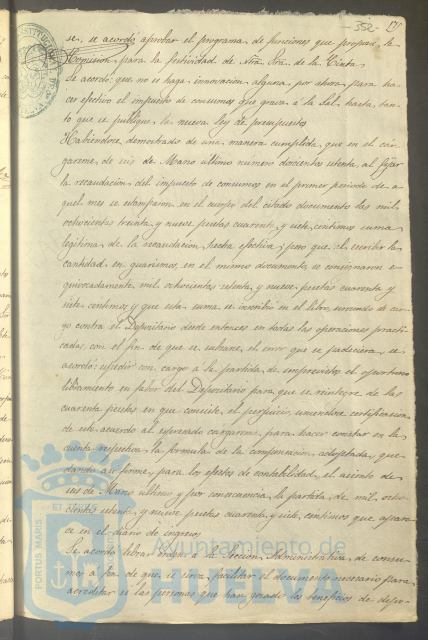 352
se, se acordó aprobar el programa de funciones que propone la
Comision para la festividad de Ntra. Sra. de la Cinta.
Se acordó: que no se haga innovacion alguna, por ahora, para ha-
cer efectivo el impuesto de consumos que grava á la Sal, hasta, tan-
to que se publique la nueva ley de presupuestos
Habiéndose, demostrado de una manera cumplida, que en el car-
gareme, de seis de Marzo ultimo numero doscientos setenta, al fijar
la recaudacion del impuesto de consumos en el primer periodo de a-
quel mes se estamparon, en el cuerpo del citado documento dos mil,
ochocientas treinta, y nueve pesetas cuarenta, y siete, centimos suma
legítima, de la recaudacion, hecha efectiva; pero que al escribir la
cantidad, en guarismos, en el mismo documento, se consignaron e-
quivocadamente, mil ochocientas setenta, y nueve, pesetas cuarenta y
siete centimos y que esta suma se inscribió en el libro,
contra el Depositario desde entonces en todas las operaciones practi-
cadas, con el fin de que se subsane, el error que se padeciera, se
acordó: expedir con cargo á la partida de imprevistos el oportuno
libramiento en favor del Depositario para que se reintegre de las
cuarenta pesetas en que consiste, el perjuicio, uniendose certificacion
de este acuerdo al espresado cargareme, para hacer constar en la
cuenta respectiva la formula de la compensacion adoptada, que-
dando asi firme, para los efectos de contabilidad, el asiento de
seis de Marzo ultimo y por consecuencia la partida, de mil, ocho-
cientas setenta, y nueve pesetas cuarenta, y siete, centimos que, apare-
ce en el diario de ingresos
Se acordó librar orden á la Seccion Administrativa, de consu-
mos á fin de que, se sirva, facilitar el documento necesario para
acreditar si las personas que han gozado los beneficios de
PORTUS MARIS
Ayuntamiento de
HUELVA